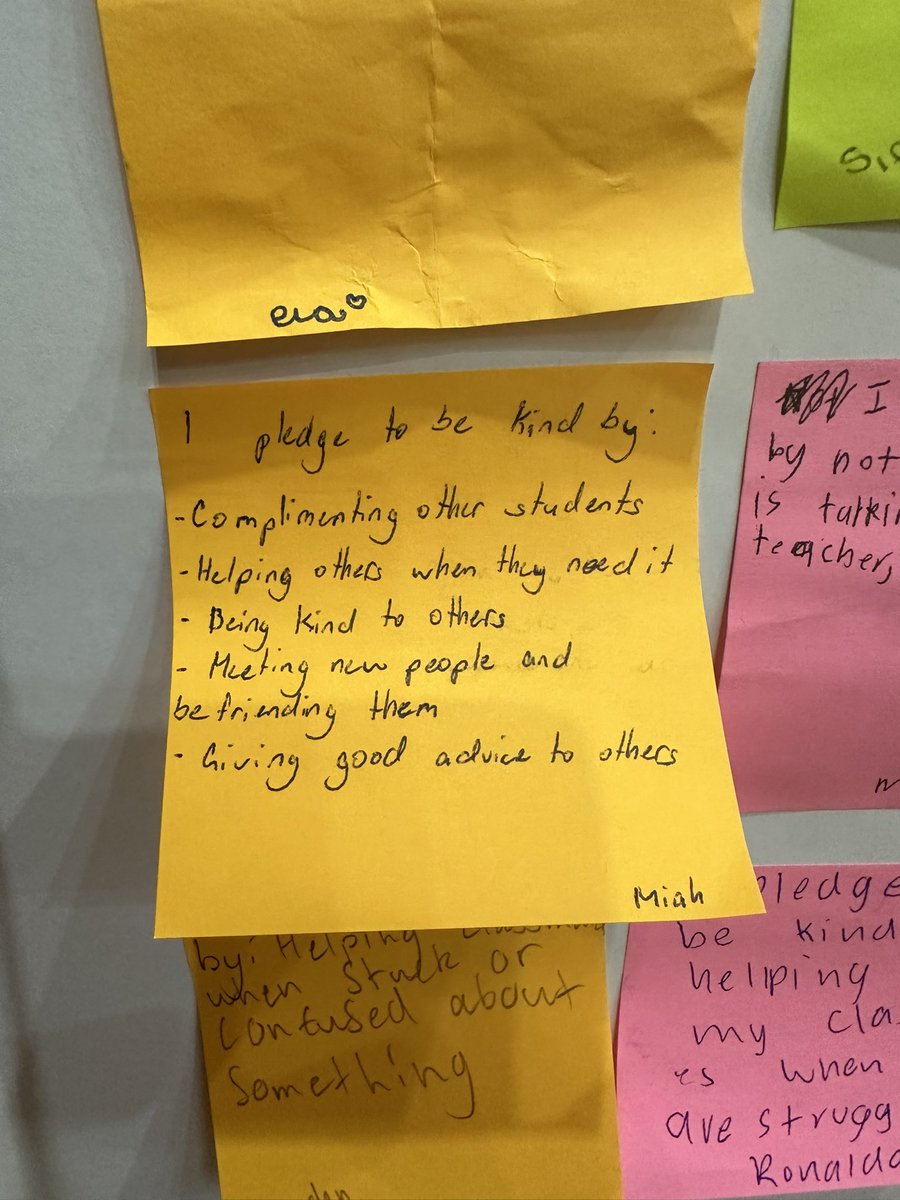 eva
I pledge to be kind by:
-Complimenting other students
-Helping others when they need it
- Being kind to others
- Meeting new people and
befriending them
- Giving good advice to others
Miah
I
by not
is talkin
teacher,
by: Helping
when stuck or
confused about
something
pledge
be kind
helping
my clas
es when
are strugg
Ronaldo